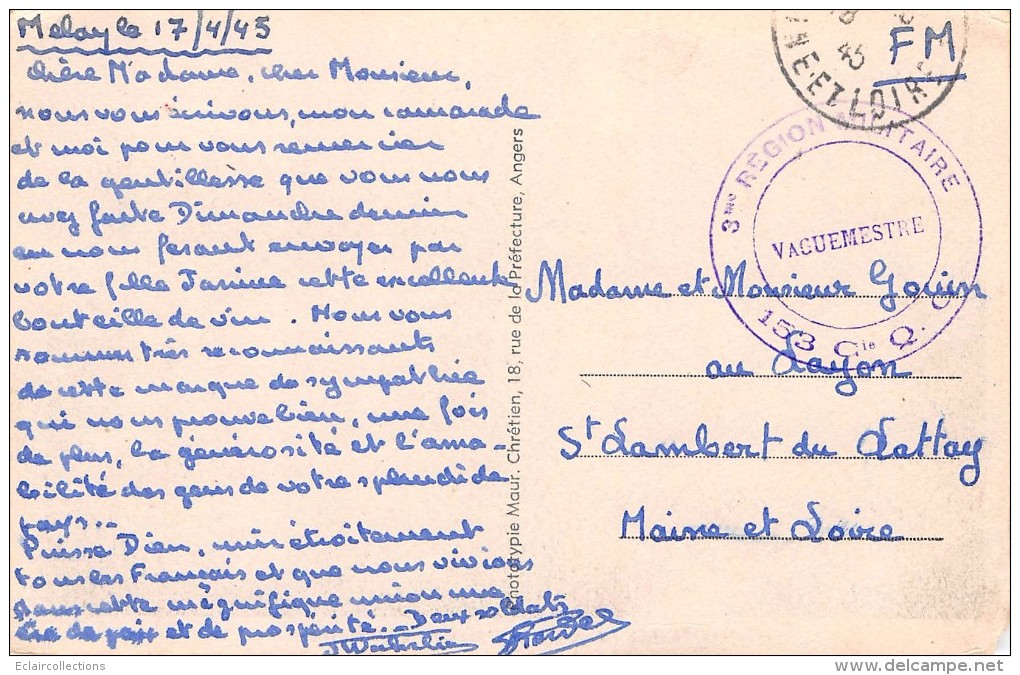 Melay le 17/4/45
Chère Madame, cher Monsieur,
nous vous écrivons, mon camarade
et moi pour vous remercier
de la gentillesse que vous nous
avez faite Dimanche dernier
en nous fesant envoyer par
votre fille Janine cette excellente
bouteille de vin. Nous vous
sommes très reconnaissants
de cette marque de sympathie
qui nous prouve bien, une fois
de plus, la générosité et l'ama-
bilité des gens de votre splendide
pays..
Puisse Dieu, unir étroitement
tous les Français et que nous vivions
dans cette magnifique union une
ère de paix et de prospérité. - Deux soldats
Phototypie Maur. Chrétien, 18, rue de la Préfecture, Angers
FM
45
NE-ET-LOIRE
3me RÉGION MILITAIRE
VAGUEMESTRE
153 Cie Q. G
Madame et Monsieur Gouin
au Layon
St Lambert du Lattay
Maine et Loire
Eclaircollections
www.delcampe.net